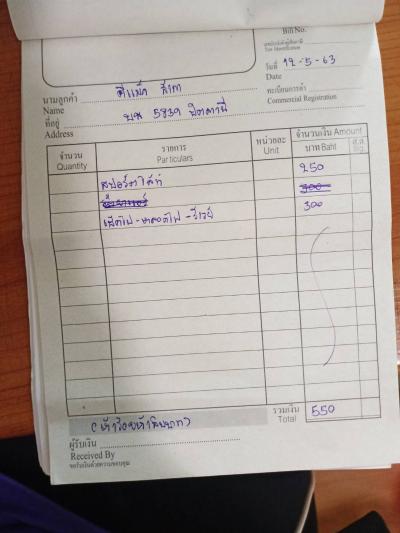 Bill No.
เลขประจำตัวผู้เสียภาษี
Tax Identification
วันที่ 12-5-63
Date
ทะเบียนการค้า
Commercial Registration
นามลูกค้า ดีแม็ก สีเทา
Name
ที่อยู่ บน 5839 ปัตตานี
Address
จำนวน รายการ หน่วยละ จำนวนเงิน Amount
Quantity Particulars Unit บาท Baht ส.ต. Stg.
สปอร์ตไลท์ 250
300
เช็คไฟ-หลอดไฟ-รีเลย์ 300
(ห้าร้อยห้าสิบบาท) รวมเงิน Total 550
ผู้รับเงิน
Received By
ขอรับเงินด้วยความขอบคุณ